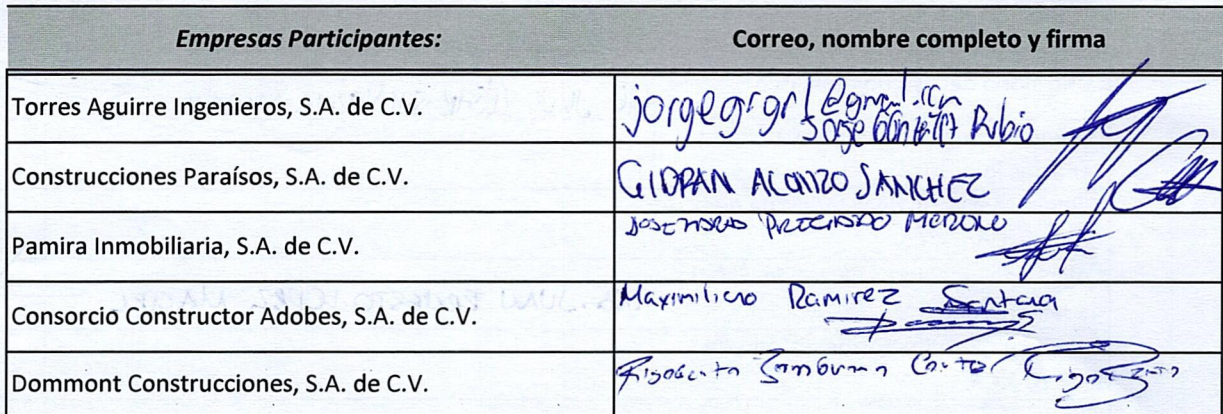 Empresas Participantes:
Correo, nombre completo y firma
Torres Aguirre Ingenieros, S.A. de C.V.
jorgegrgr1@gmail.com
Jorge González Rubio
Construcciones Paraísos, S.A. de C.V.
GIDRAN ALONZO SANCHEZ
Pamira Inmobiliaria, S.A. de C.V.
PRECIADO
Consorcio Constructor Adobes, S.A. de C.V.
Maximiliano Ramirez Santana
Dommont Construcciones, S.A. de C.V.
Rigoberto